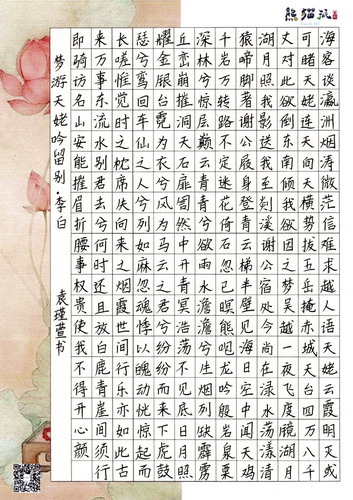 海客谈瀛洲烟涛微茫信难求越人语天姥云霞明灭或
可睹天姥连天向天横势拔五岳掩赤城天台四万八千
丈对此欲倒东南倾我欲因之梦吴越一夜飞度镜湖月
湖月照我影送我至剡溪谢公宿处今尚在渌水荡漾清
猿啼脚著谢公屐身登青云梯半壁见海日空中闻天鸡
千岩万转路不定迷花倚石忽已暝熊咆龙吟殷岩泉栗
深林兮惊层巅云青青兮欲雨水澹澹兮生烟列缺霹雳
丘峦崩摧洞天石扉訇然中开青冥浩荡不见底日月照
耀金银台霓为衣兮风为马云之君兮纷纷而来下虎鼓
瑟兮鸾回车仙之人兮列如麻忽魂悸以魄动恍惊起而
长嗟惟觉时之枕席失向来之烟霞世间行乐亦如此古
来万事东流水别君去兮何时还且放白鹿青崖间须行
即骑访名山安能摧眉折腰事权贵使我不得开心颜
梦游天姥吟留别·李白
袁瑾萱书